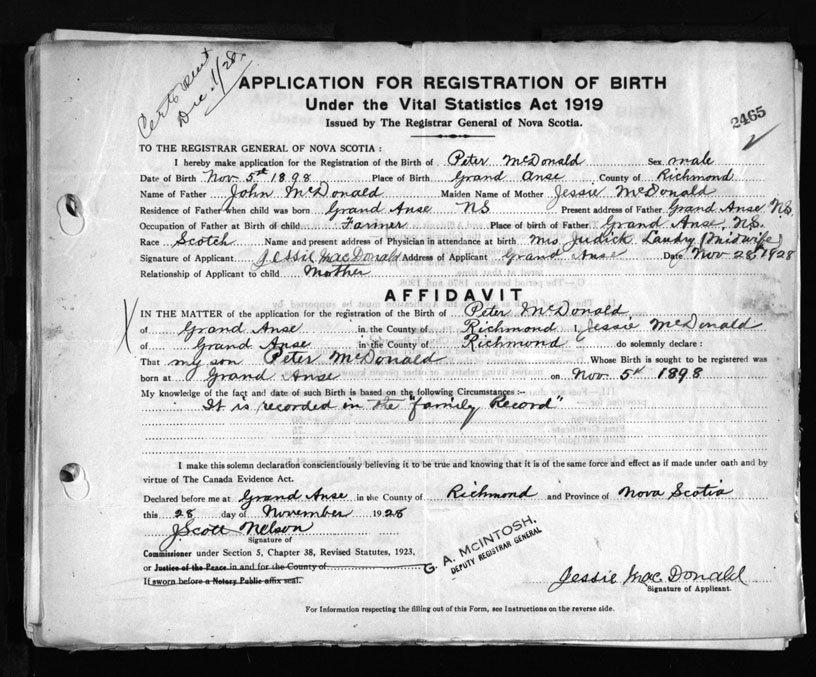 Cert sent
Dec. 1/28.
APPLICATION FOR REGISTRATION OF BIRTH
Under the Vital Statistics Act 1919
Issued by The Registrar General of Nova Scotia.
2465
TO THE REGISTRAR GENERAL OF NOVA SCOTIA :
I hereby make application for the Registration of the Birth of Peter McDonald Sex male
Date of Birth Nov. 5th 1898 Place of Birth Grand Anse County of Richmond
Name of Father John McDonald Maiden Name of Mother Jessie McDonald
Residence of Father when child was born Grand Anse NS Present address of Father Grand Anse NS.
Occupation of Father at Birth of child Farmer Place of birth of Father Grand Anse, NS.
Race Scotch Name and present address of Physician in attendance at birth Mrs Judick Landry (Midwife)
Signature of Applicant Jessie MacDonald Address of Applicant Grand Anse Date Nov 28th 1928
Relationship of Applicant to child Mother
AFFIDAVIT
IN THE MATTER of the application for the registration of the Birth of Peter McDonald
of Grand Anse in the County of Richmond I, Jessie McDonald
of Grand Anse in the County of Richmond do solemnly declare :
That my son Peter McDonald Whose Birth is sought to be registered was
born at Grand Anse on Nov. 5th 1898
My knowledge of the fact and date of such Birth is based on the following Circumstances :-
It is recorded in the "family Record"
I make this solemn declaration conscientiously believing it to be true and knowing that it is of the same force and effect as if made under oath and by
virtue of The Canada Evidence Act.
Declared before me at Grand Anse in the County of Richmond and Province of Nova Scotia
this 28 day of November 1928
J. Scott Nelson
Signature of
Commissioner under Section 5, Chapter 38, Revised Statutes, 1923,
or Justice of the Peace in and for the County of
If sworn before a Notary Public affix seal.
G. A. MCINTOSH,
DEPUTY REGISTRAR GENERAL
Jessie MacDonald
Signature of Applicant.
For Information respecting the filling out of this Form, see Instructions on the reverse side.